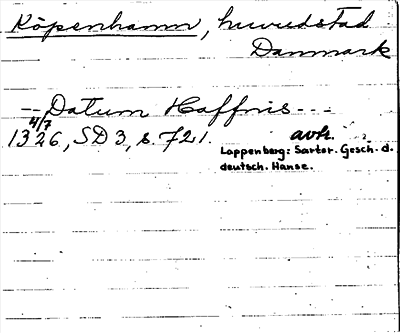 Köpenhamn, huvudstad
Danmark
-- Datum Haffnis ---
4/7
1326, SD 3, s. 721. avtr.
Lappenberg: Sartor. Gesch. d.
deutsch. Hanse.